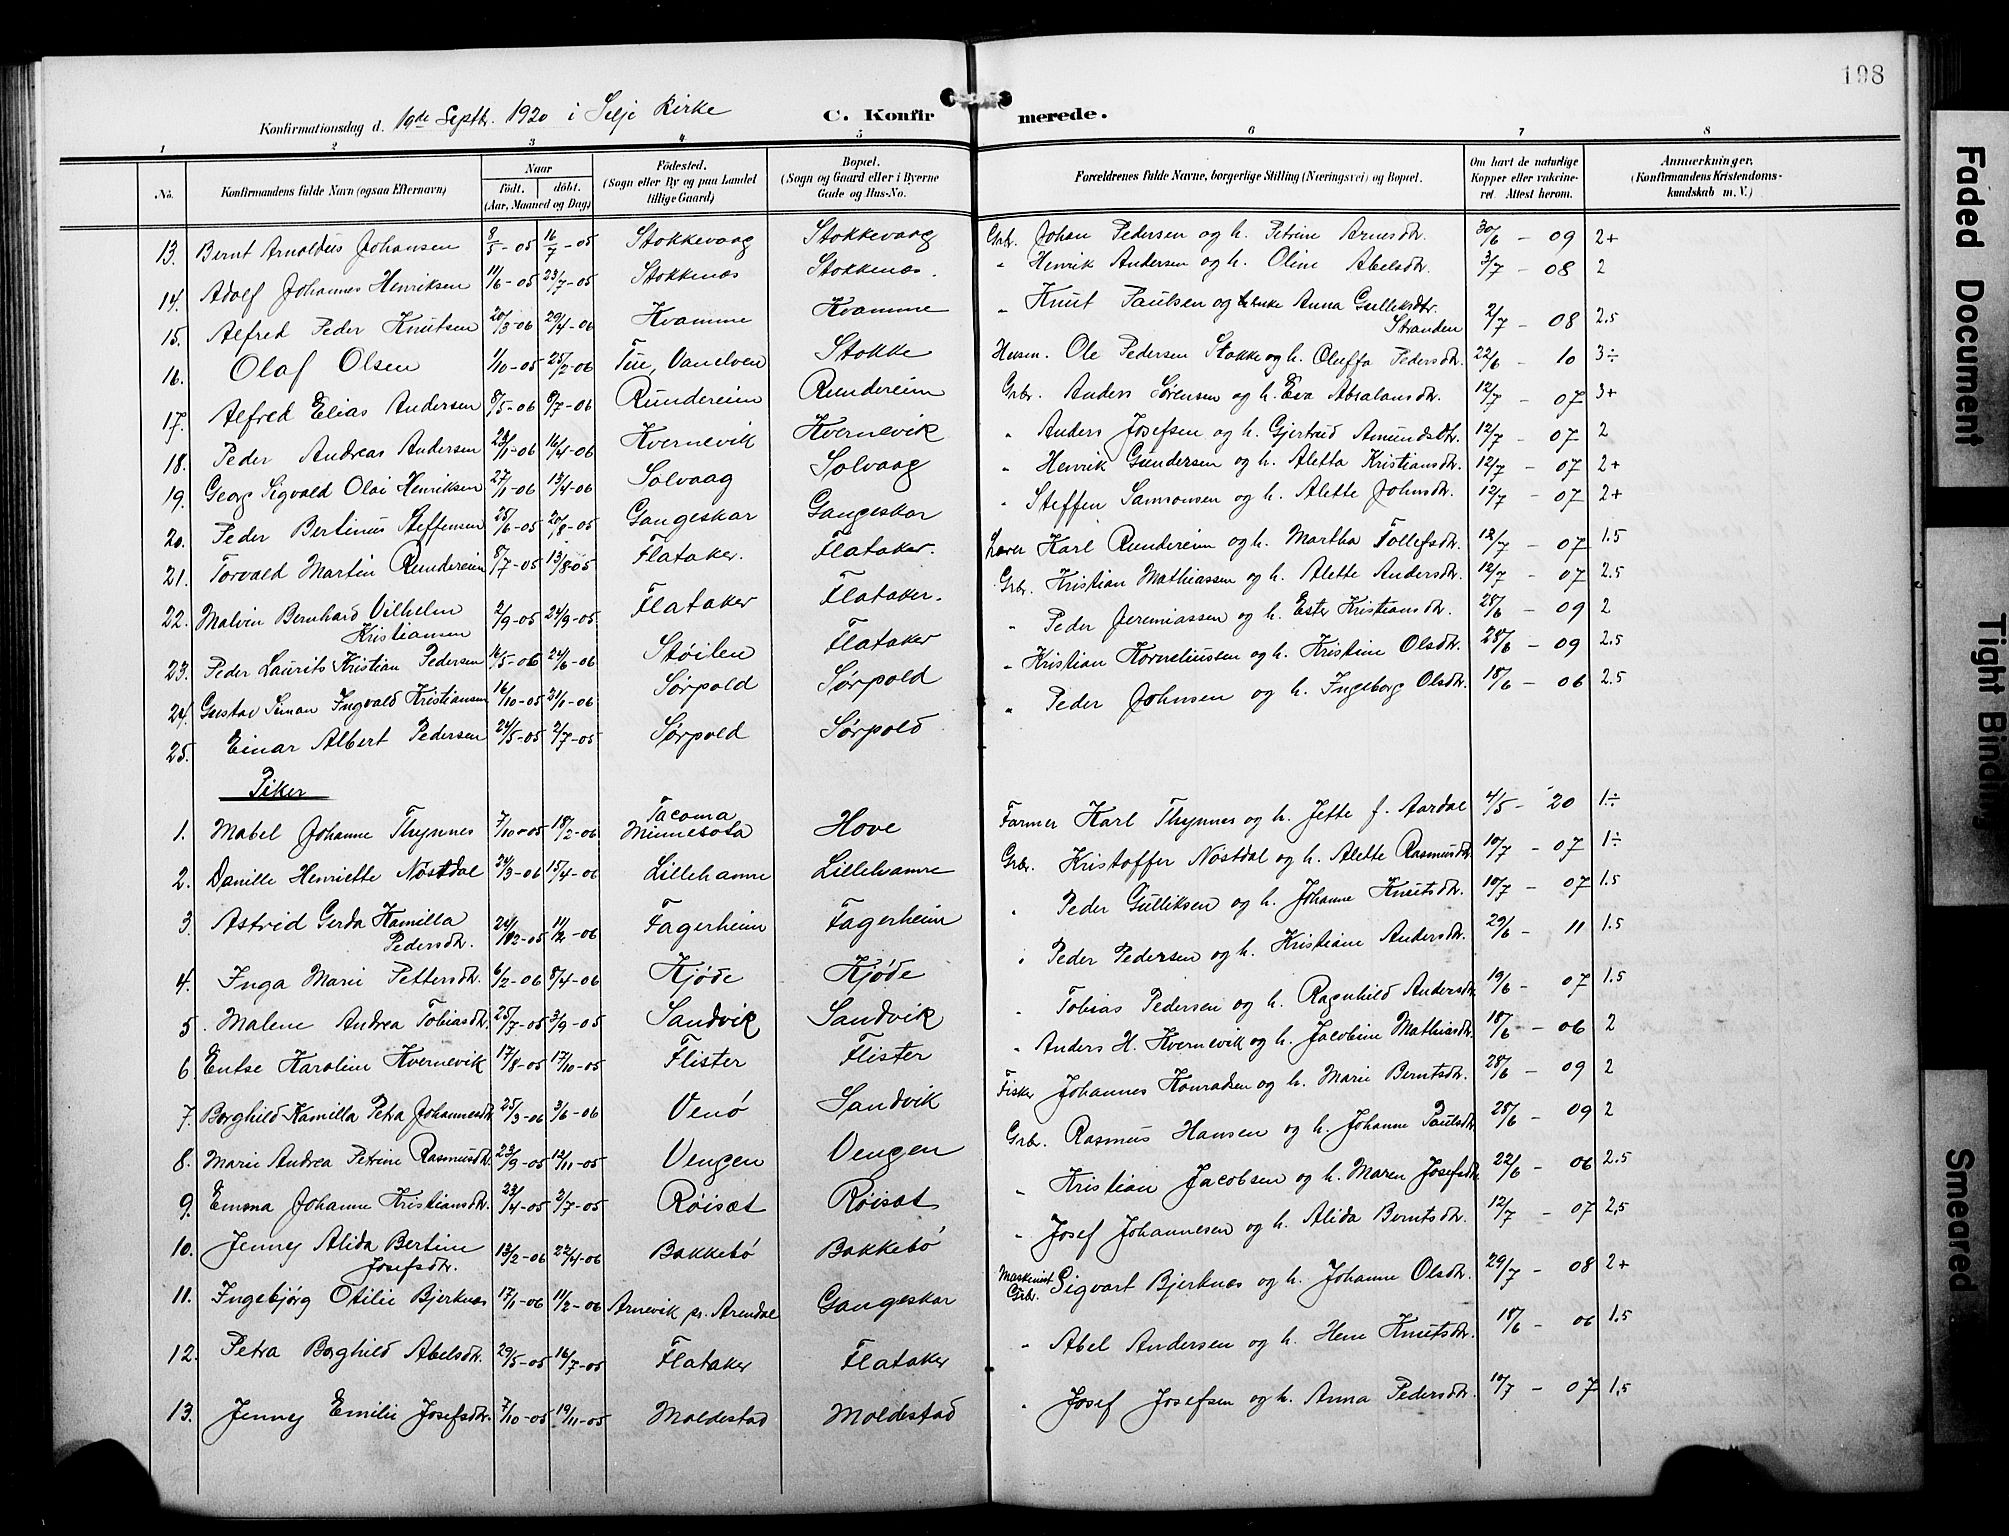 198
Konfirmationsdag d. 19de Septbr. 1920 i Selje Kirke
C. Konfirmerede.
1 2 3 4 5 6 7 8
No. Konfirmandens fulde Navn (ogsaa Efternavn) Naar født. døbt. (Aar, Maaned og Dag) Fødested. (Sogn eller By og paa Landet tillige Gaard) Bopæl. (Sogn og Gaard eller i Byerne Gade og Hus-No. Forældrenes fulde Navne, borgerlige Stilling (Næringsvei) og Bopæl. Om havt de naturlige Kopper eller vaccineret. Attest herom. Anmærkninger, (Konfirmandens Kristendomskundskab m. V.)
13. Bernt Arnoldus Johansen 8/5-05 16/7-05 Stokkevaag Stokkevaag Grbr. Johan Pedersen og h. Petrine Arnesdtr. 30/6 - 09 2+
14. Adolf Johannes Henriksen 11/6-05 23/7-05 Stokkenæs Stokkenæs. " Henrik Andersen og h. Oline Abelsdtr. 3/7 - 08 2
15. Alfred Peder Knutsen 20/3-06 29/4-06 Kvamme Kvamme " Knut Paulsen og Anna Gulleksdtr. Stranden 2/7 - 08 2.5
16. Olaf Olsen 1/10-05 25/2-06 Tue, Vanelven Stokke Husm. Ole Pedersen Stokke og h. Oluffa Pedersdtr. 22/6 - 10 3÷
17. Alfred Elias Andersen 8/5-06 8/7-06 Rundereim Rundereim Grbr. Anders Sørensen og h. Eva Absalonsdtr. 12/7 - 07 3+
18. Peder Andreas Andersen 23/1-06 16/4-06 Kvernevik Kvernevik " Anders Josefsen og h. Gjertrud Amundsdtr. 12/7 - 07 2
19. Georg Sigvald Olai Henriksen 27/1-06 13/4-06 Solvaag Solvaag " Henrik Gundersen og h. Aletta Kristiansdtr. 12/7 - 07 2+
20. Peder Bertinus Steffensen 25/6-05 20/8-05 Gangeskar Gangeskar " Steffen Samsonsen og h. Alette Johnsdtr. 12/7 - 07 2+
21. Torvald Martin Rundereim 8/7-05 13/8-05 Flataker. Flataker. Lærer Karl Rundereim og h. Martha Tollefsdtr. 12/7 - 07 1.5
22. Malvin Bernhard Vilhelm Kristiansen 2/9-05 24/9-05 Flataker Flataker. Grbr. Kristian Mathiassen og h. Alette Andersdtr. 12/7 - 07 2.5
23. Peder Laurits Kristian Pedersen 16/5-06 24/6-06 Støilen Flataker " Peder Jeremiassen og h. Ester Kristiansdtr. 28/6 - 09 2
24. Gustav Simon Ingvald Kristiansen 16/10-05 21/1-06 Sørpold Sørpold " Kristian Korneliussen og h. Kristine Olsdtr. 28/6 - 09 2.5
25. Einar Albert Pedersen 24/5-05 2/7-05 Sørpold Sørpold " Peder Johnsen og h. Ingeborg Olsdtr. 18/6 - 06 2.5
Piker
1. Mabel Johanne Thynnes 7/10-05 18/2-06 Tacoma Minnesota Hove Farmer Karl Thynnes og h. Jette f. Aardal 4/5 - 20 1÷
2. Danille Henriette Nøstdal 24/3-06 15/4-06 Lillehamre Lillehamre Grbr. Kristoffer Nøstdal og h. Alette Rasmusdtr. 10/7 - 07 1÷
3. Astrid Gerda Kamilla Pedersdtr. 24/12-05 11/2-06 Fagerheim Fagerheim " Peder Gulliksen og h. Johanne Knutsdtr. 10/7 - 07 1.5
4. Inga Marie Pettersdtr. 6/2-06 8/4-06 Kjøde Kjøde " Peder Pedersen og h. Kristiane Andersdtr. 29/6 - 11 1.5
5. Malene Andrea Tobiasdtr. 25/7-05 3/9-05 Sandvik Sandvik " Tobias Pedersen og h. Ragnhild Andersdtr. 19/6 - 07 1.5
6. Entse Karoline Kvernevik 17/8-05 17/10-05 Flister Flister " Anders H. Kvernevik og h. Jacobine Mathiasdtr. 18/6 - 06 2
7. Borghild Kamilla Petra Johannesdtr. 25/3-06 3/6-06 Venø Sandvik Fisker Johannes Konradsen og h. Marie Berntsdtr. 28/6 - 09 2
8. Marie Andrea Petrine Rasmusdtr. 23/9-05 12/11-05 Vengen Vengen Grbr. Rasmus Hansen og h. Johanne Paulsdtr. 28/6 - 09 2
9. Emma Johanne Kristiansdtr. 23/4-05 2/7-05 Røisæt Røisæt " Kristian Jacobsen og h. Maren Josefsdtr. 22/6 - 06 2.5
10. Jenny Alida Bertine Josefsdtr. 13/2-06 22/4-06 Bakkebø Bakkebø " Josef Johannesen og h. Alida Berntsdtr. 12/7 - 07 2.5
11. Ingebjørg Otilie Bjerknæs 17/1-06 11/2-06 Arnevik pr. Arendal Gangeskar Maskinist Grbr. Sigvart Bjerknæs og h. Johanne Olsdtr. 29/7 - 08 2+
12. Petra Borghild Abelsdtr. 29/5-05 16/7-05 Flataker Flataker " Abel Andersen og h. Hene Knutsdtr. 18/6 - 06 1.5
13. Jenny Emilie Josefsdtr. 7/10-05 19/11-05 Moldestad Moldestad " Josef Josefsen og h. Anna Pedersdtr. 10/7 - 07 1.5
Faded Document
Tight Binding
Smeared